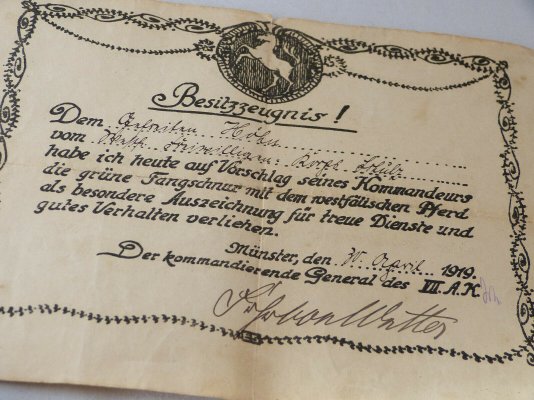 Besitzzeugnis!
Dem Gefreiten
vom
habe ich heute auf Vorschlag seines Kommandeurs
die grüne Fangschnur mit dem westfälischen Pferd
als besondere Auszeichnung für treue Dienste und
gutes Verhalten verliehen.
Münster, den 30. April 1919.
Der kommandierende General des VII. A.K.